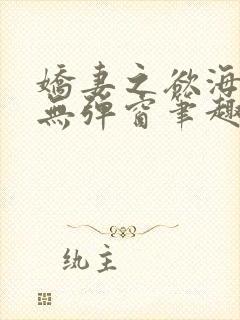 嬌妻之欲海
無彈窗筆趣
紈主